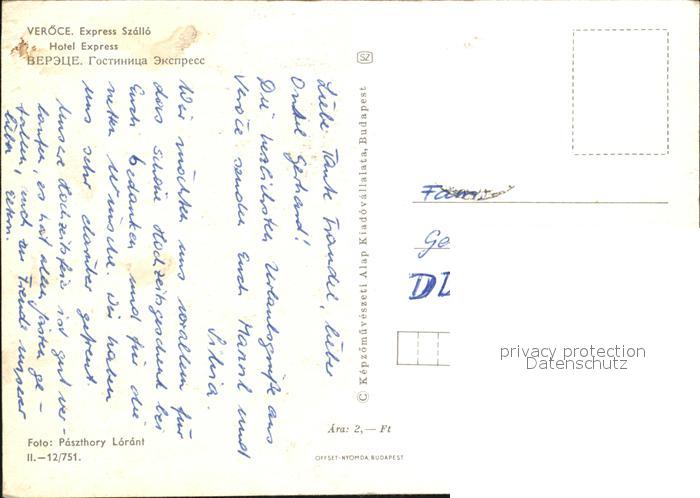 VERŐCE. Express Szálló
Hotel Express
ВЕРЭЦЕ. Гостиница Экспресс
SZ
Liebe Tante Traudel, lieber
Onkel Gerhard!
Die herzlichsten Urlaubsgrüße aus
Veröce senden Euch Harril und
Silvia.
Wir möchten uns vorallem für
das schöne Hochzeitsgeschenk bei
Euch bedanken und für die
netten Wünsche. Wir haben
uns sehr darüber gefreut.
Unsere Hochzeitsfeier ist gut ver-
laufen, es hat allen Gästen ge-
fallen, und zur Freude unserer
lieben Eltern.
© Képzőművészeti Alap Kiadóvállalata, Budapest
Fam.
Ge
DD
Ára: 2,— Ft
Foto: Pászthory Lóránt
II.—12/751.
OFFSET-NYOMDA, BUDAPEST
privacy protection
Datenschutz